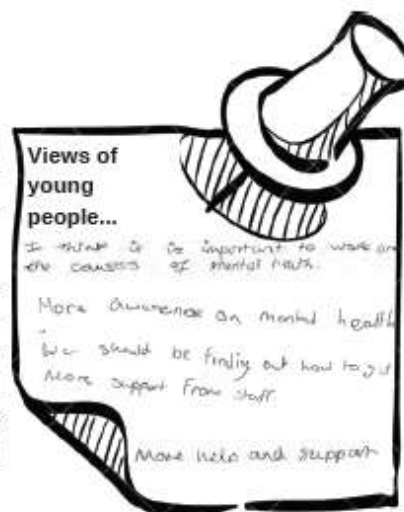 Views of
young
people...
I think it is important to work on
the causes of mental health.
More awareness on mental health
We should be finding out how to get
More support from staff
More help and support